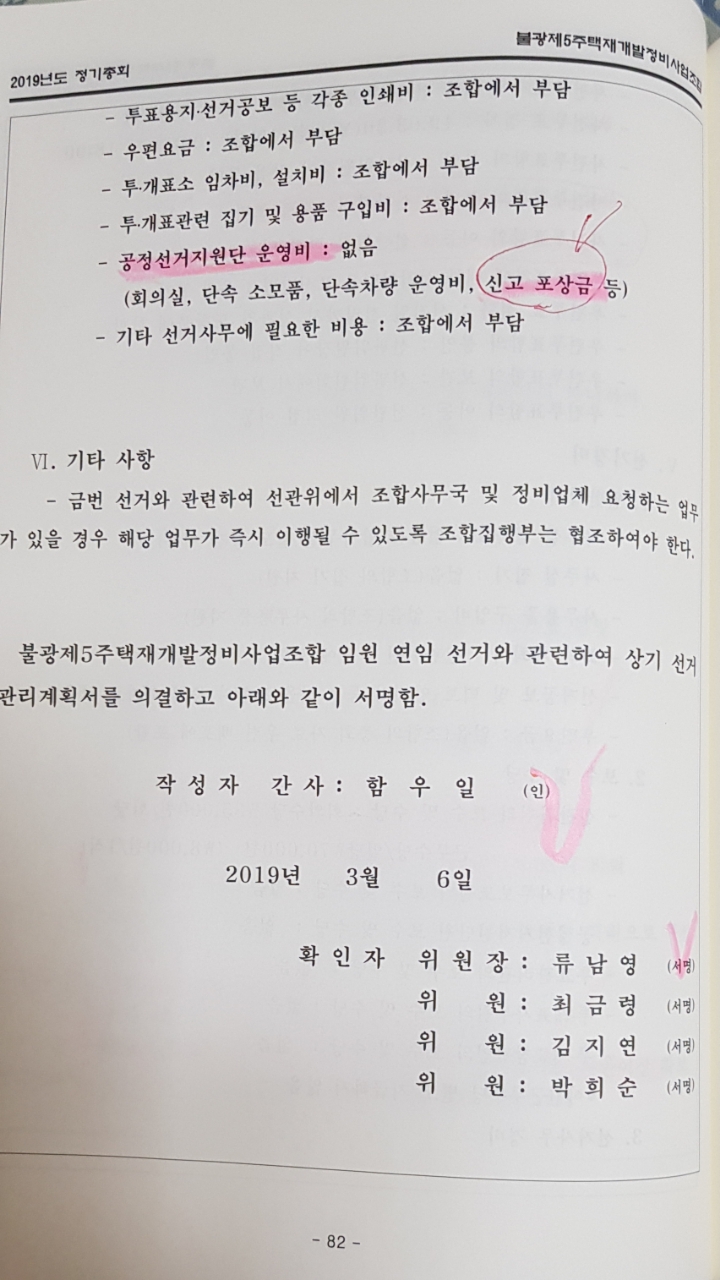 2019년도 정기총회
불광제5주택재개발정비사업조합
- 투표용지·선거공보 등 각종 인쇄비 : 조합에서 부담
- 우편요금 : 조합에서 부담
- 투·개표소 임차비, 설치비 : 조합에서 부담
- 투·개표관련 집기 및 용품 구입비 : 조합에서 부담
- 공정선거지원단 운영비 : 없음
(회의실, 단속 소모품, 단속차량 운영비, 신고 포상금 등)
- 기타 선거사무에 필요한 비용 : 조합에서 부담
Ⅵ. 기타 사항
- 금번 선거와 관련하여 선관위에서 조합사무국 및 정비업체 요청하는 업무
가 있을 경우 해당 업무가 즉시 이행될 수 있도록 조합집행부는 협조하여야 한다.
불광제5주택재개발정비사업조합 임원 연임 선거와 관련하여 상기 선거
관리계획서를 의결하고 아래와 같이 서명함.
작성자 간사 : 함우일 (인)
2019년 3월 6일
확인자 위원장 : 류남영 (서명)
위 원 : 최금령 (서명)
위 원 : 김지연 (서명)
위 원 : 박희순 (서명)
- 82 -